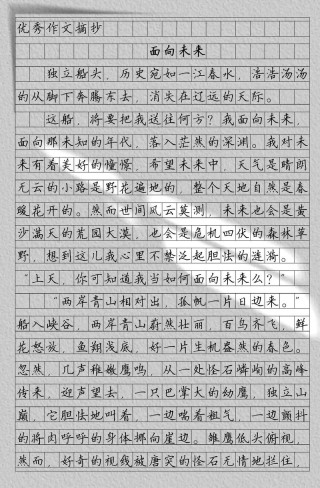 优秀作文摘抄
面向未来
独立船头,历史宛如一江春水,浩浩汤汤
的从脚下奔腾东去,消失在辽远的天际。
这船,将要把我送往何方?我面向未来,
面向那未知的年代,落入茫然的深渊。我对未
来有着美好的憧憬,希望未来中,天气是晴朗
无云的小路是野花遍地的,整个天地自然是春
暖花开的。然而世间风云莫测,未来也会是黄
沙满天的荒国大漠,也会是危机四伏的森林草
野,想到这儿我心里不禁泛起胆怯的涟漪。
“上天,你可知道我当如何面向未来么?”
“两岸青山相对出,孤帆一片日边来。”
船入峡谷,两岸青山蔚然壮丽,百鸟齐飞,鲜
花怒放,鱼翔浅底,好一片生机盎然的春色。
忽然,几声稚嫩鹰鸣,从一处怪石嶙峋的高峰
传来,迎声望去,一只巴掌大的幼鹰,独立山
巅,它胆怯地叫着,一边喘着粗气,一边颤抖
的将肉呼呼的身体挪向崖边。雏鹰低头俯视,
然而,好奇的视线被唐突的怪石无情地拦住,